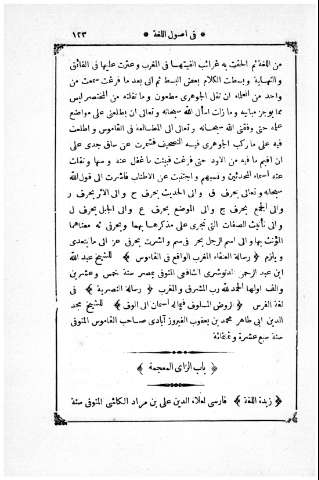 ﴿ فى اصول اللغة ﴾ ١٢٣
من اللغة ثم الحقت به غرائب الفيتها فى المغرب وعثرت عليها فى الفائق
والنهاية وبسطت الكلام بعض البسط ثم انى بعد ما فرغت سمعت من
واحد من العلماء ان نقل الجوهرى مطعون وما نقلته من المختصر ليس
مما يوجز مبانيه وما زلت اسأل الله سبحانه وتعالى ان يطلعنى على مواضع
حتى وفقنى الله سبحانه وتعالى الى المطالعة فى القاموس و اطلعت
فيه على ما ركب الجوهرى فيه التصحيف فشمرت عن ساق جدى على
ان اقيم ما فيه من الاود حتى فرغت فبينت ما غفل عنه و سها ونقلت
عنه اسماء المحدثين ونسبهم واجتنبت عن الاطناب فاشرت الى قول الله
سبحانه وتعالى بحرف ق والى الحديث بحرف ح والى الاثر بحرف ر
والى الجمع بحرف ج والى الموضع بحرف ع والى الجبل بحرف ل
والى تأنيث الصفات التى تجرى على مذكرها بها وبحرفى ثه معناهما
المؤنث بها والى اسم الرجل بحرفى سم واشرت بحرفى عز الى ما يتعدى
ويلزم ﴿ رسالة العنقاء المغرب الواقع فى القاموس ﴾ للشيخ عبد الله
ابن عبد الرحمن الدنوشرى الشافعى المتوفى بمصر سنة خمس وعشرين
والف اولها الحمد لله رب المشرق والمغرب ﴿ رسالة النصرية ﴾ فى
لغة الفرس ﴿ الروض المسلوف فيما له اسمان الى الوف ﴾ للشيخ مجد
الدين ابى طاهر محمد بن يعقوب الفيروز آبادى صاحب القاموس المتوفى
سنة سبع عشرة وثمانمائة
﴿ باب الزاى المعجمة ﴾
﴿ زبدة اللغة ﴾ فارسى لعلاء الدين على بن مراد الكاشى المتوفى سنة